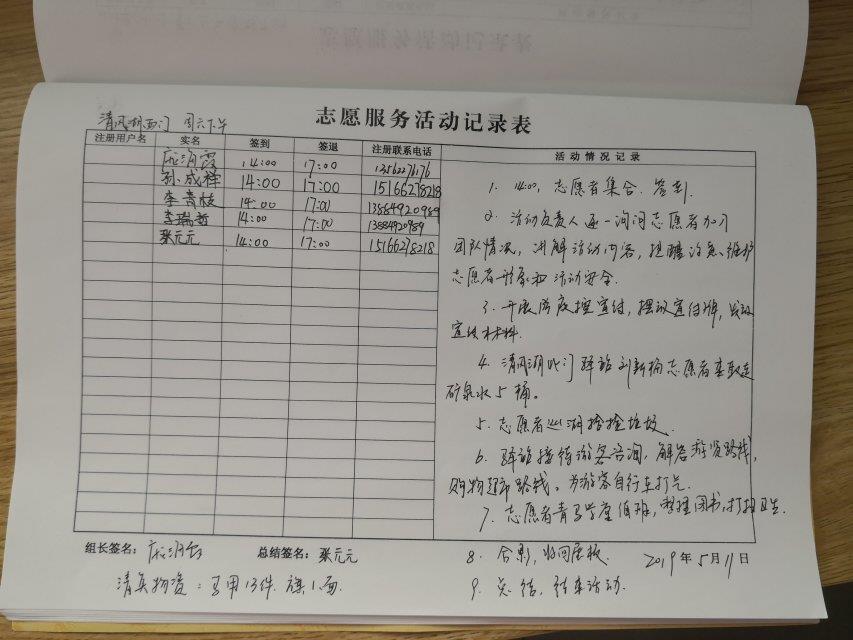 志愿服务活动记录表
清风湖西门 周六下午
注册用户名 实名 签到 签退 注册联系电话 活动情况记录
14:00 17:00 13562276176
孙成祥 14:00 17:00 15166278218
李青枝 14:00 17:00 13884920989
李瑞哲 14:00 17:00 13884920989
张元元 14:00 17:00 15166278218
1. 14:00, 志愿者集合. 签到.
2. 活动负责人逐一询问志愿者加入
团队情况, 讲解活动内容, 提醒注意、维护
志愿者形象和活动安全.
3. 开展宣传, 摆放宣传牌, 发放
宣传材料.
4. 清风湖北门驿站刘新楠志愿者来取走
矿泉水5桶。
5. 志愿者巡湖捡拾垃圾.
6. 驿站接待游客咨询, 解答游览路线,
购物超市路线。为游客自行车打气.
7. 志愿者青马学堂值班, 整理图书, 打扫卫生.
8. 合影, 收回展板.
9. 总结, 结束活动.
组长签名: 总结签名: 张元元 2019年5月11日
清点物资: 马甲13件. 旗1面.